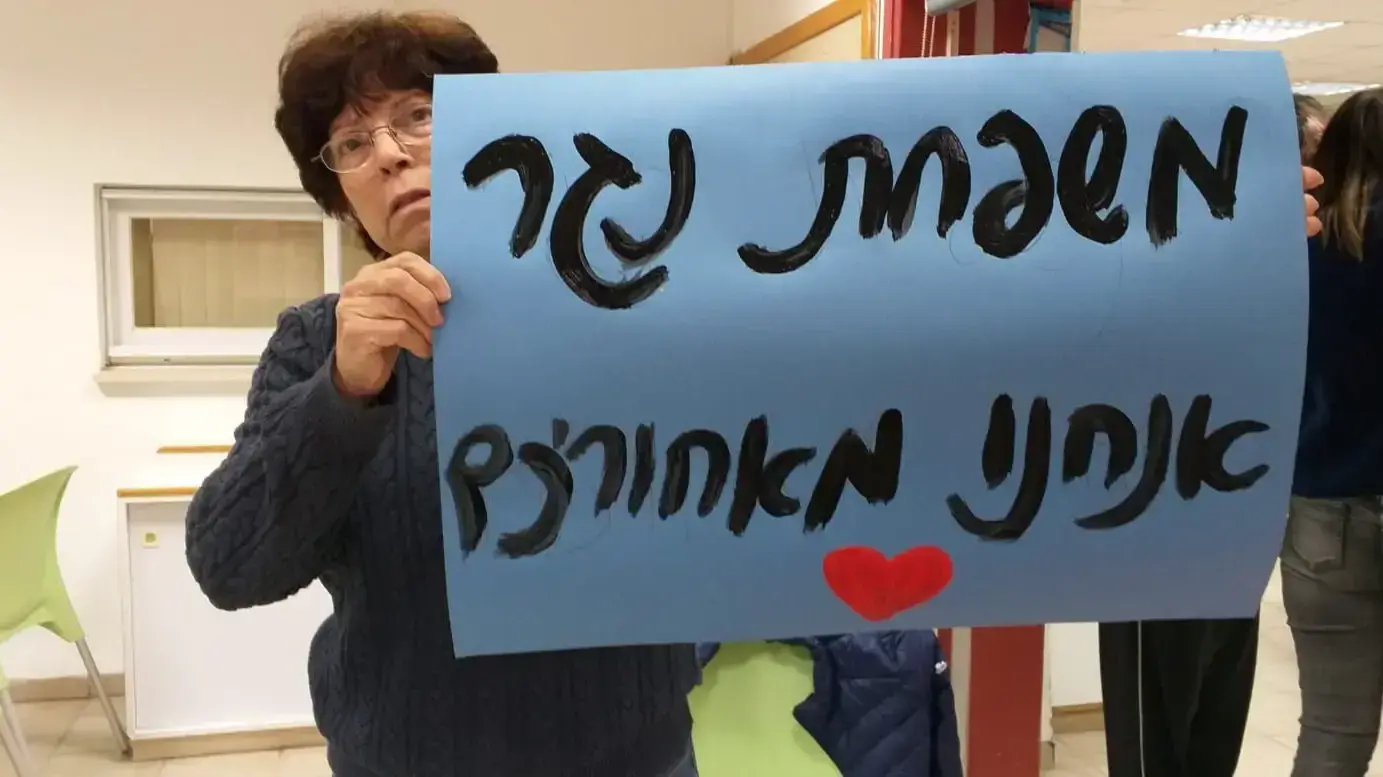 משפחת נגר
אנחנו מאחוריכם